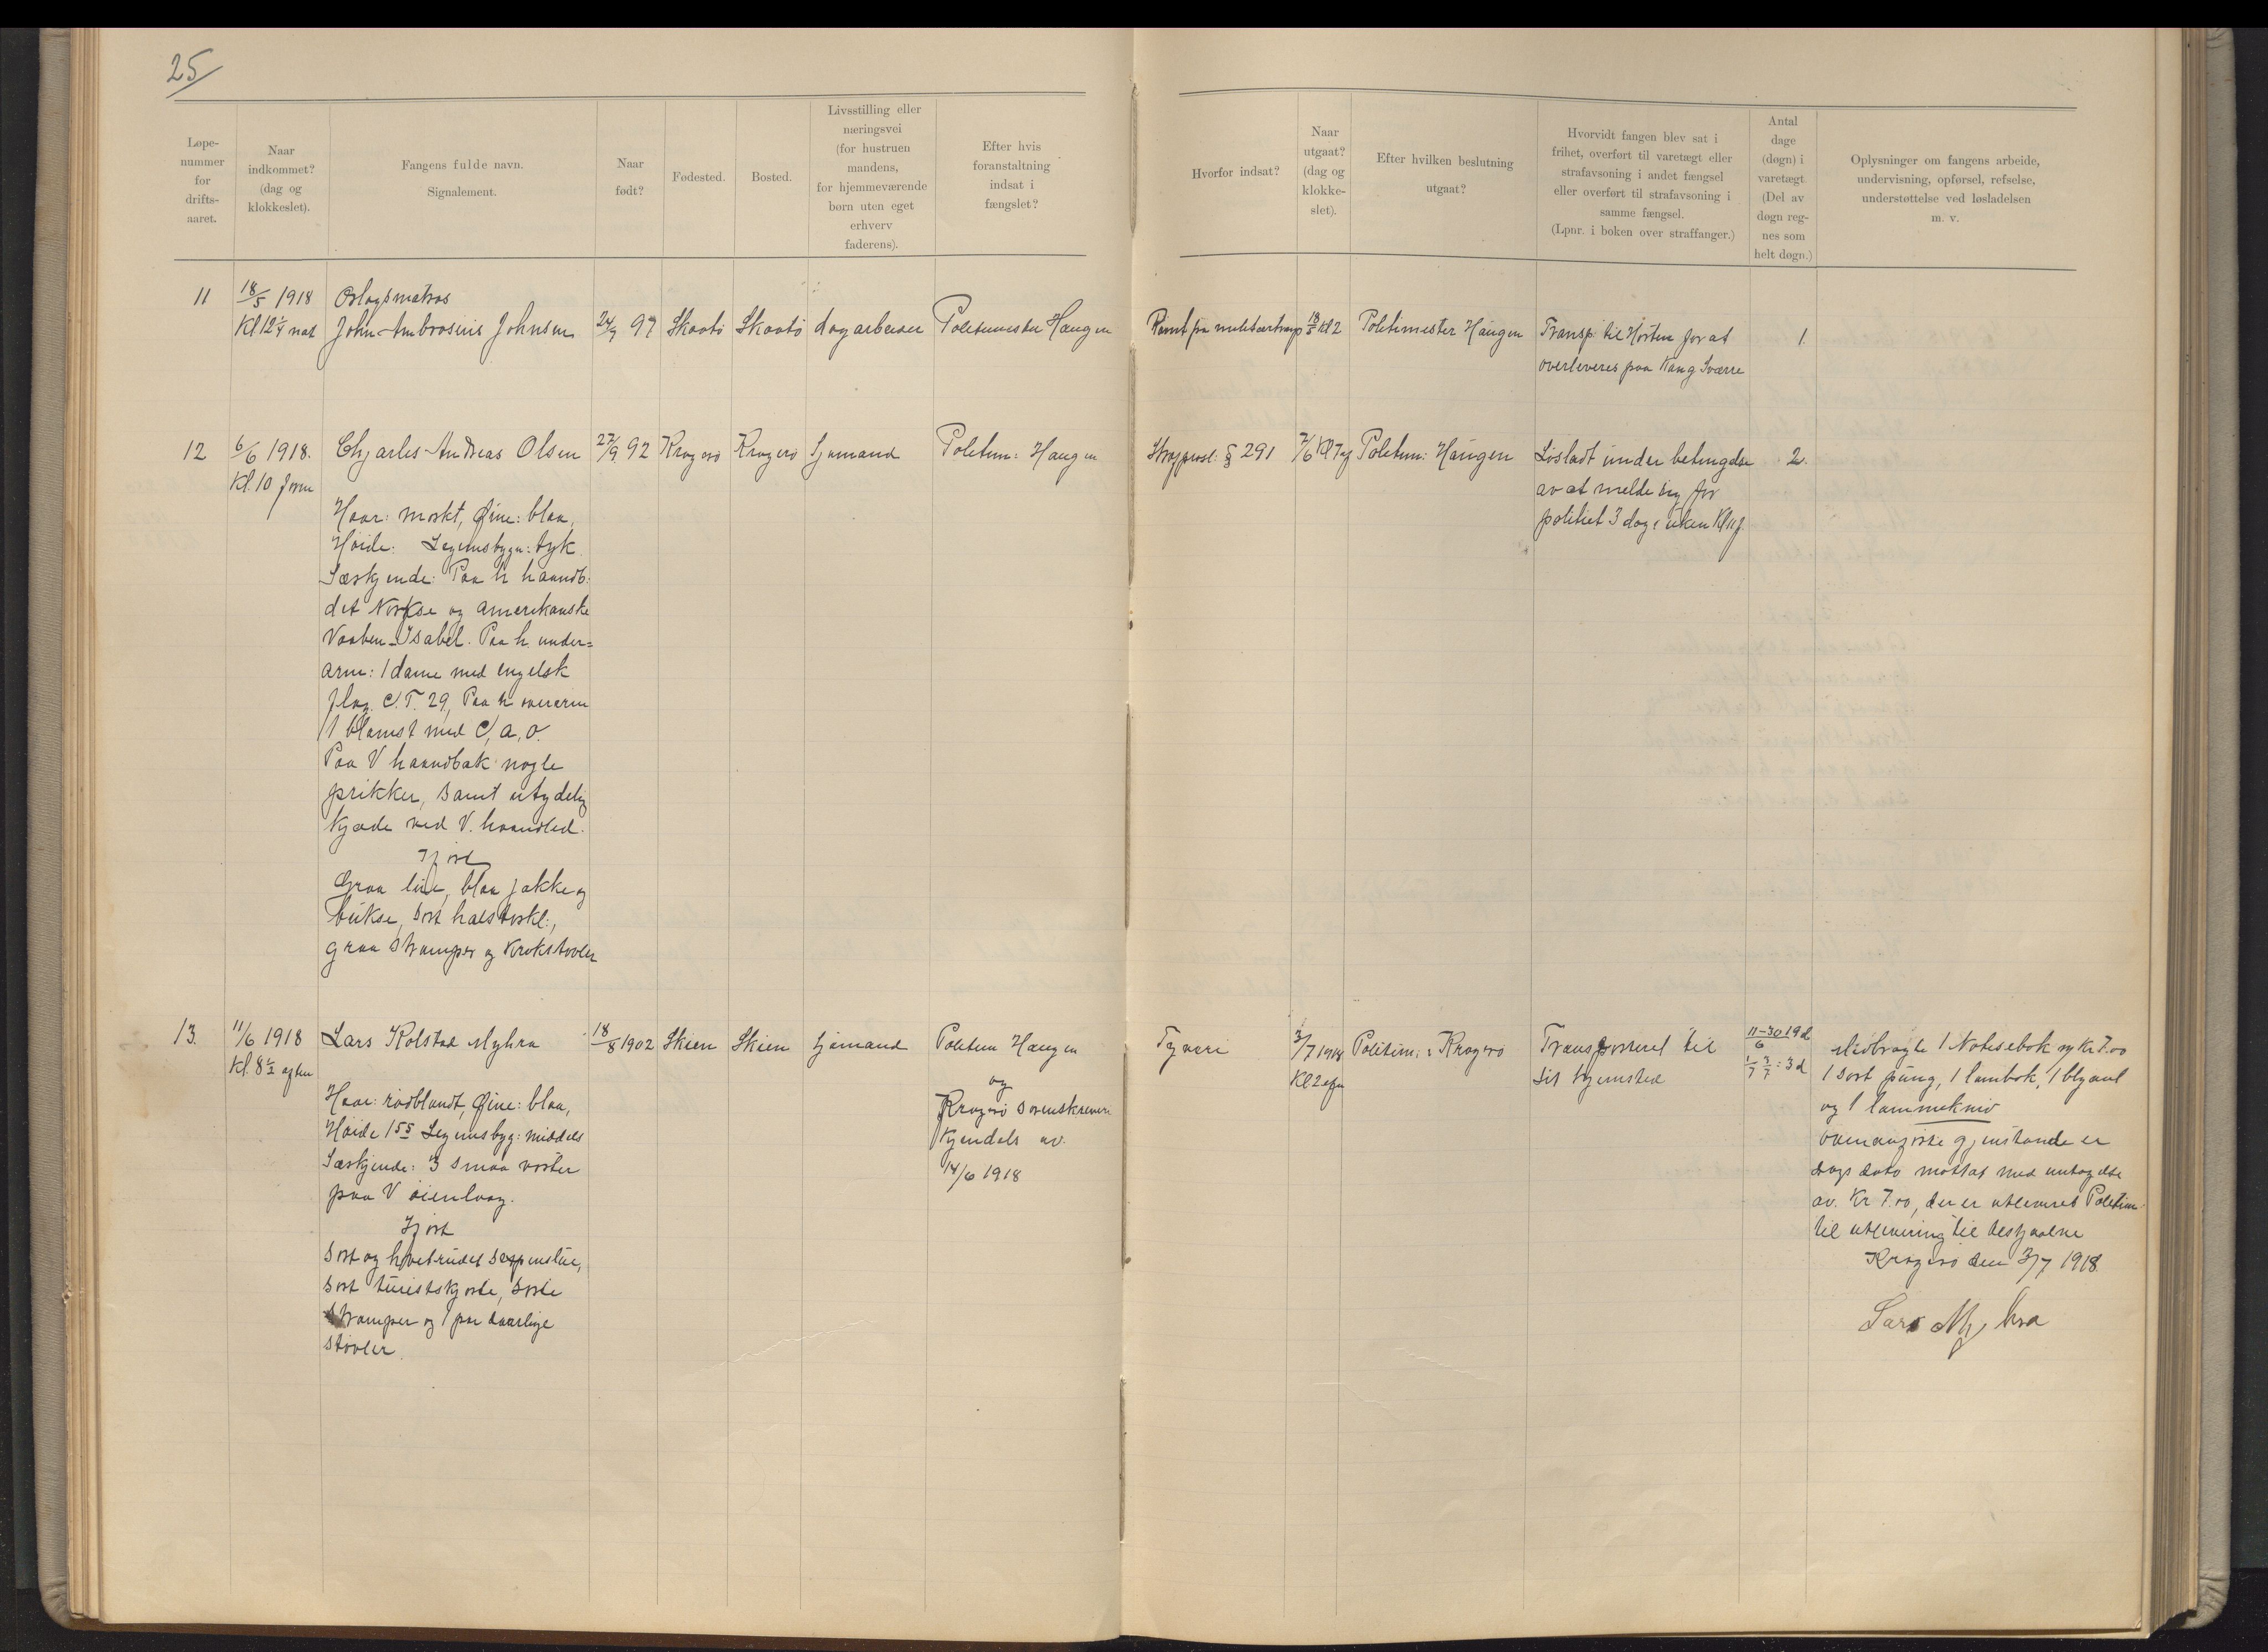 25
Løpe-
nummer
for
drifts-
aaret.
Naar
indkommet?
(dag og
klokkeslet).
Fangens fulde navn.
Signalement.
Naar
født?
Fødested.
Bosted.
Livsstilling eller
næringsvei
(for hustruen
mandens,
for hjemmeværende
børn uten eget
erhverv
faderens).
Efter hvis
foranstaltning
indsat i
fængslet?
Hvorfor indsat?
Naar
utgaat?
(dag og
klokke-
slet).
Efter hvilken beslutning
utgaat?
Hvorvidt fangen blev sat i
frihet, overført til varetægt eller
strafavsoning i andet fængsel
eller overført til strafavsoning i
samme fængsel.
(Lpnr. i boken over straffanger.)
Antal
dage
(døgn) i
varetægt
(Del av
døgn reg-
nes som
helt døgn.)
Oplysninger om fangens arbeide,
undervisning, opførsel, refselse,
understøttelse ved løsladelsen
m. v.
11
18/5 1918
Kl 12 1/4 nat
Orlogsmatros
John Ambrosius Johnsen
24/9 97
Skaatö
Skaatö
dagarbeider
Politimester Haugen
Rømt fra
18/5 Kl 2
Politimester Haugen
Transp. til Horten for at
overleveres paa Kong Sværre
1
12
6/6 1918.
Kl. 10 form
Chjarles Andreas Olsen
27/9 92
Kragerö
Kragerö
Sjömand
Politim: Haugen
Straffprosl: § 291
7/6 Kl 7
Politim: Haugen
Løsladt under betingelse
av at melde sig for
politiet 3 dag i uken Kl 11 f.
2.
Haar: mørkt, Øine: blaa,
Høide: Legemsbygn: tyk.
Særkjende: Paa h haandb.
det Norkse og amerikanske
Vaaben - Isabel. Paa h. under-
arm: 1 dame med engelsk
flag. C.T. 29, Paa h overarm
1 blomst med C, a, o.
Paa V haandbak nogle
prikker, samt utydelig
Kjæde ved V. haandled.
Iført
Graa lue, blaa jakke og
bukse, sort halstørkl:,
graa strømper og Krokstøvler
13.
11/6 1918
Kl. 8 1/2 aften
Lars Kolstad Myhra
18/8 1902
Skien
Skien
Sjømand
Politim Haugen
og
Kragerö Sorenskriveri
Kjendels av.
14/6 1918
Tyveri
3/7 1918
Kl 2 efm
Politim: i Kragerö
Transporteret til
sit hjemsted
11-30/6 19d
1/7 3/7 : 3d
Medbragte 1 Notisebok og Kr 7.00
1 sort pung, 1 lombok, 1 blyant
og 1 lommekniv
ovenangivne gjenstande er
dags dato mottat med undtagelse
av. Kr 7.00, der er utleveret Politim.
til utlevering til bestjaalne
Kragerö den 3/7 1918.
Lars Myhra
Haar: rødblondt, Øine: blaa,
Høide 155 Legemsbyg: middels
Særkjende: 3 smaa vorter
paa V øienlaag.
Iført
Sort og hvitrudet sexpenslue,
sort turistskjorte, sorte
strømper og 1 par daarlige
støvler.